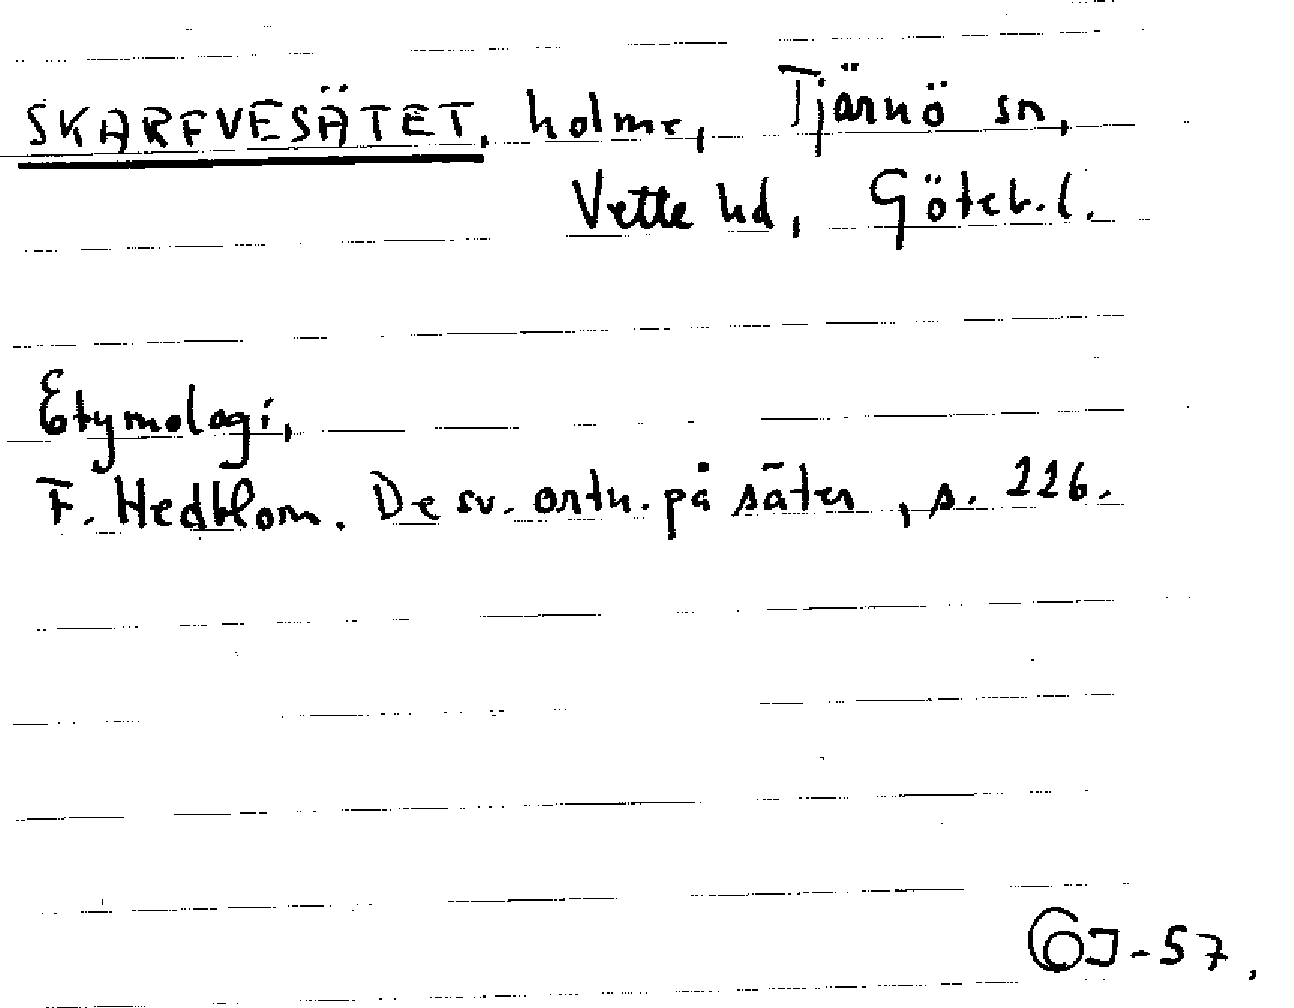 SKARFVESÄTET, holme, Tjärnö sn,
Vette hd, Göteb.l.
Etymologi,
F. Hedblom. De sv. ortn. på säter, s. 226.
GJ-57.